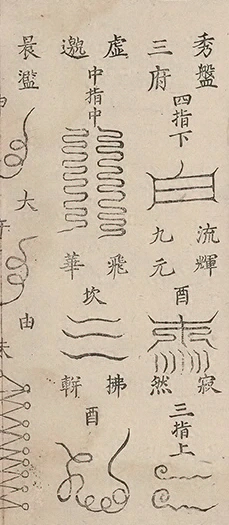 秀盤
四指下
三府
流輝
酉
九元
寂
三指上
然
虛
中指中
邀
飛
坎
華
拂
酉
軿
晨
大
由